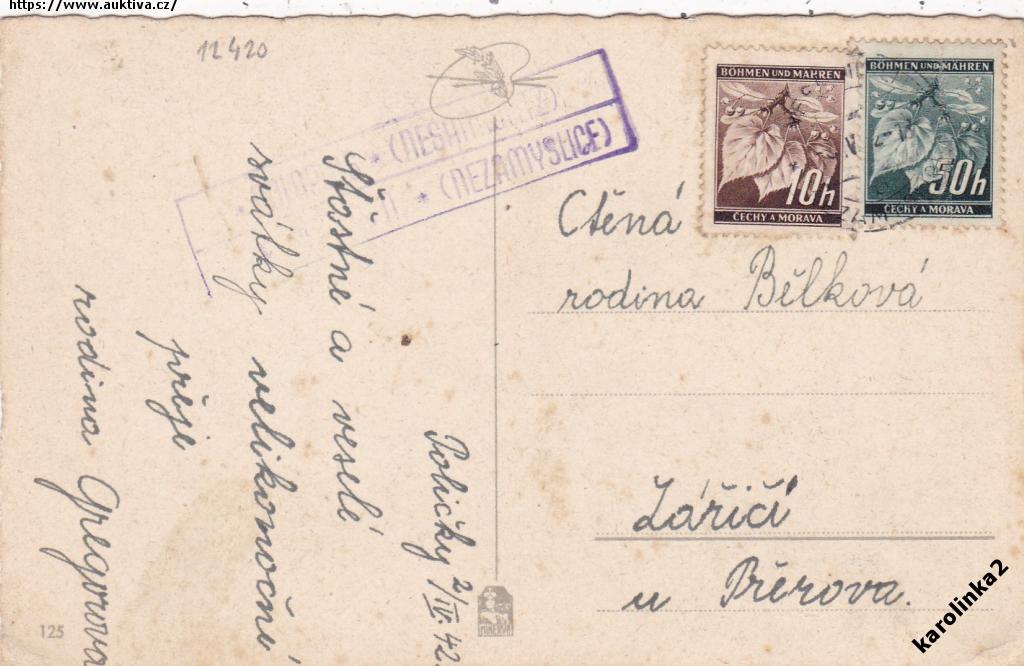 https://www.auktiva.cz/
12420
* (NEZAMYSLICE)
BÖHMEN UND MÄHREN
10h
ČECHY A MORAVA
BÖHMEN UND MÄHREN
50h
ČECHY A MORAVA
Policky 2/IV. 42.
Šťastné a veselé
svátky velikonoční
přeje
rodina Gregorova
Ctěná
rodina Bělková
Záříčí
u Přerova.
125
MINERVA
karolinka2